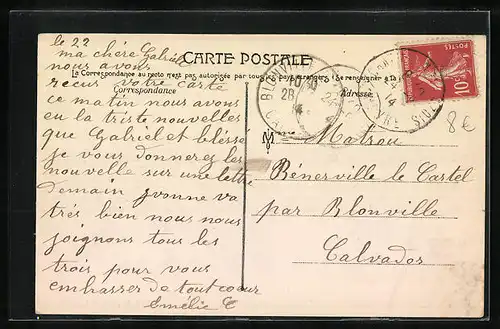 le 22
ma chère Gabriel
nous avons
recue votre carte
ce matin nous avons
eu la triste nouvelles
que Gabriel et bléssé
je vous donnerez les
nouvelle sur une lettre
demain yvonne va
trés bien nous nous
joignons tous les
trois pour vous
embrasser de tout coeur
Emélie C
CARTE POSTALE
La Correspondance au recto n'est pas autorisée par tous les pays étrangers (Se renseigner à la
Correspondance
Adresse
BLONVILLE
28
14
POSTES
10
8€
M Matrou
Bénerville le Castel
par Blonville
Calvados